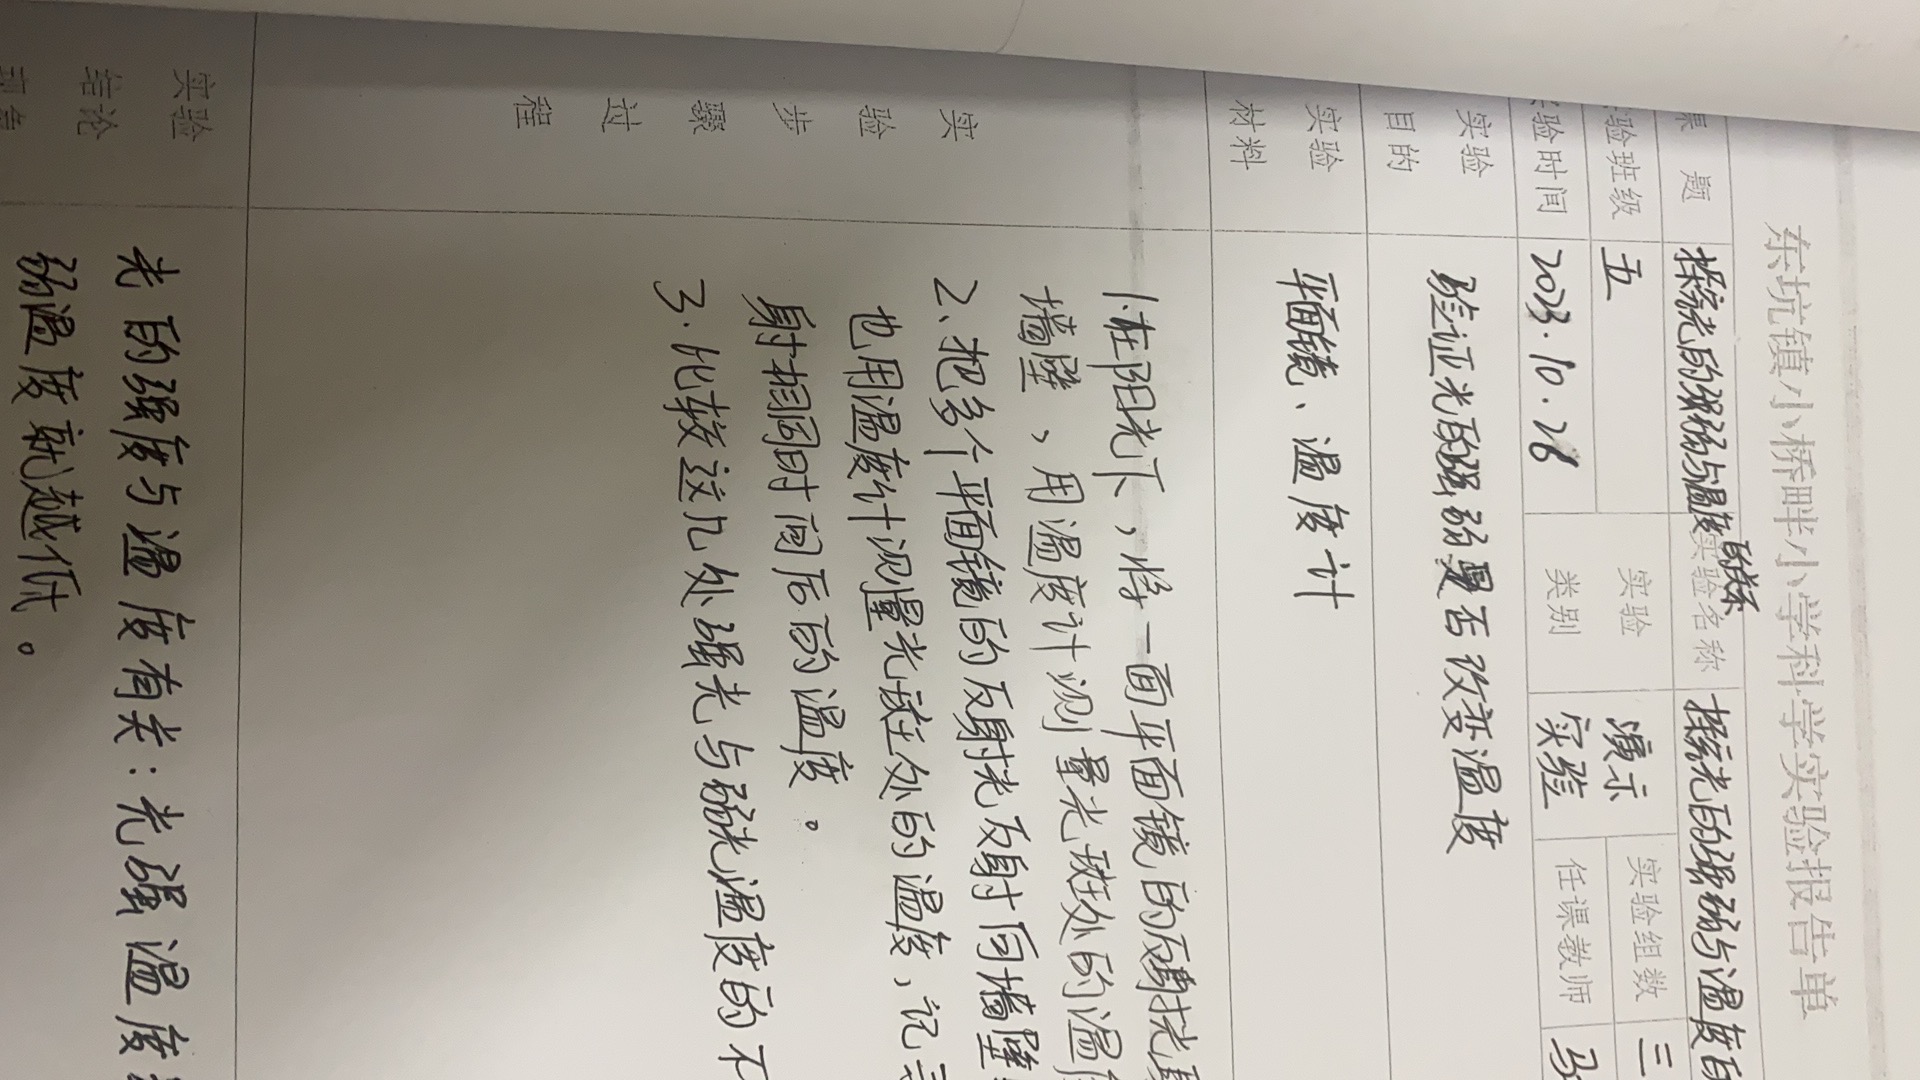 东坑镇小桥畔小学科学实验报告单
课 题 探究光的强弱与温度的关系 实验名称 探究光的强弱与温度的
实验班级 五 实验类别 演示实验 实验组数 三
实验时间 2023.10.26 任课教师
实验目的 验证光的强弱是否改变温度
实验材料 平面镜、温度计
实验步骤过程
1.在阳光下,将一面平面镜的反射光
墙壁,用温度计测量光斑处的温
2.把多个平面镜的反射光反射同墙壁
也用温度计测量光斑处的温度,记
射相同时间后的温度。
3.比较这几处强光与弱光温度的不
实验结论
光的强度与温度有关:光强温度
弱温度就越低。